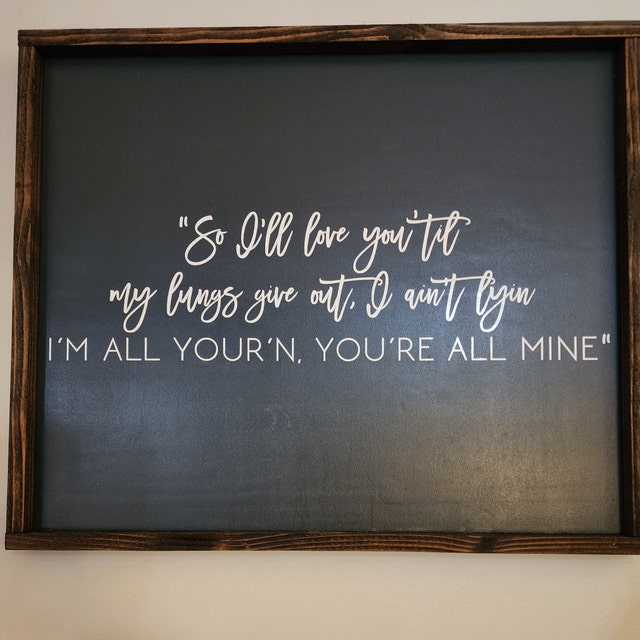 "So I'll love you 'til
my lungs give out, I ain't lyin
I'M ALL YOUR'N, YOU'RE ALL MINE"